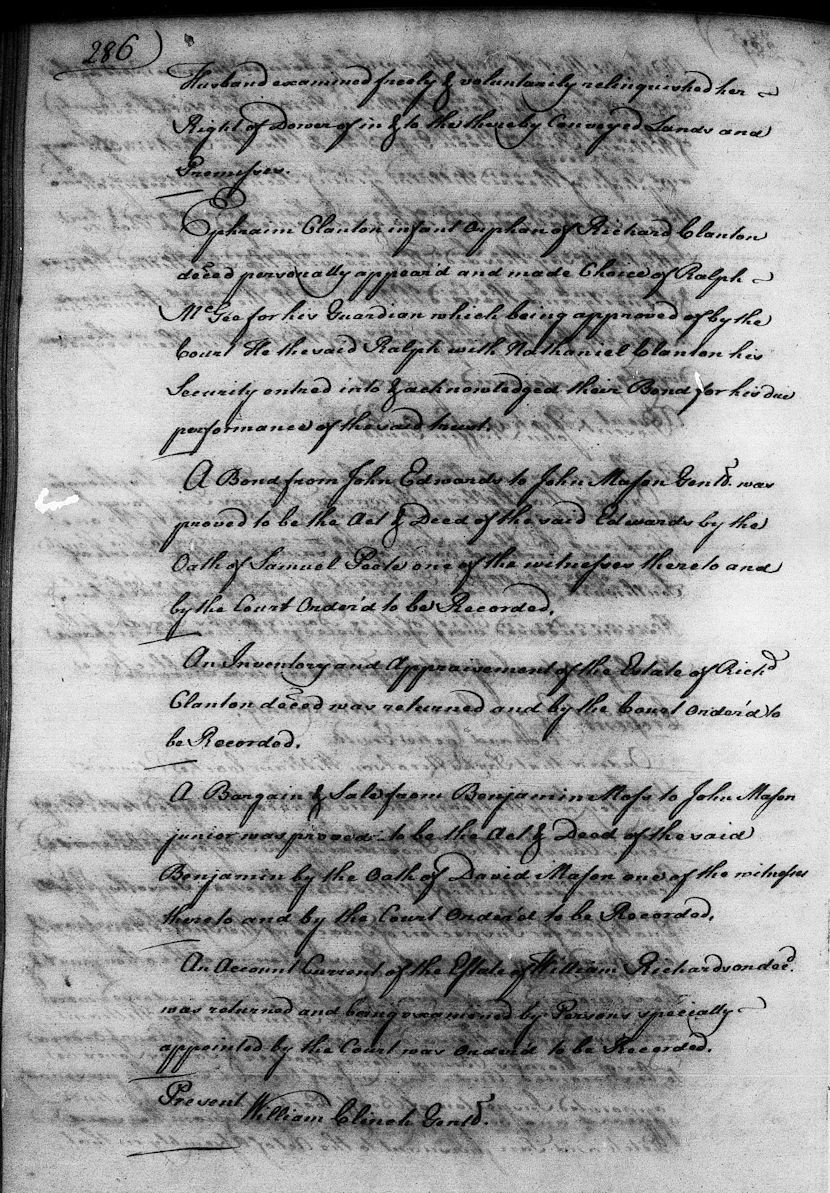 286)
Husband examined freely & voluntarily relinquished her
Right of Dower of in & to the thereby Conveyed Lands and
Premisses.
Ephraim Clanton infant Orphan of Richard Clanton
deced personally appear'd and made Choice of Ralph
McGee for his Guardian which being approved of by the
Court He the said Ralph with Nathaniel Clanton his
Security entred into & acknowledged their Bond for his due
performance of the said trust.
A Bond from John Edwards to John Mason Gentd. was
proved to be the Act & Deed of the said Edwards by the
Oath of Samuel Peete one of the witnesses thereto and
by the Court Order'd to be Recorded.
An Inventory and Appraisement of the Estate of Richd
Clanton deced was returned and by the Court Order'd to
be Recorded.
A Bargain & Sale from Benjamin Moss to John Mason
junior was proved to be the Act & Deed of the said
Benjamin by the Oath of David Mason one of the witnesses
thereto and by the Court Order'd to be Recorded.
An Account Current of the Estate of William Richardson decd.
was returned and being examined by Persons specially
appointed by the Court was Order'd to be Recorded.
Present William Clinch Gentd.